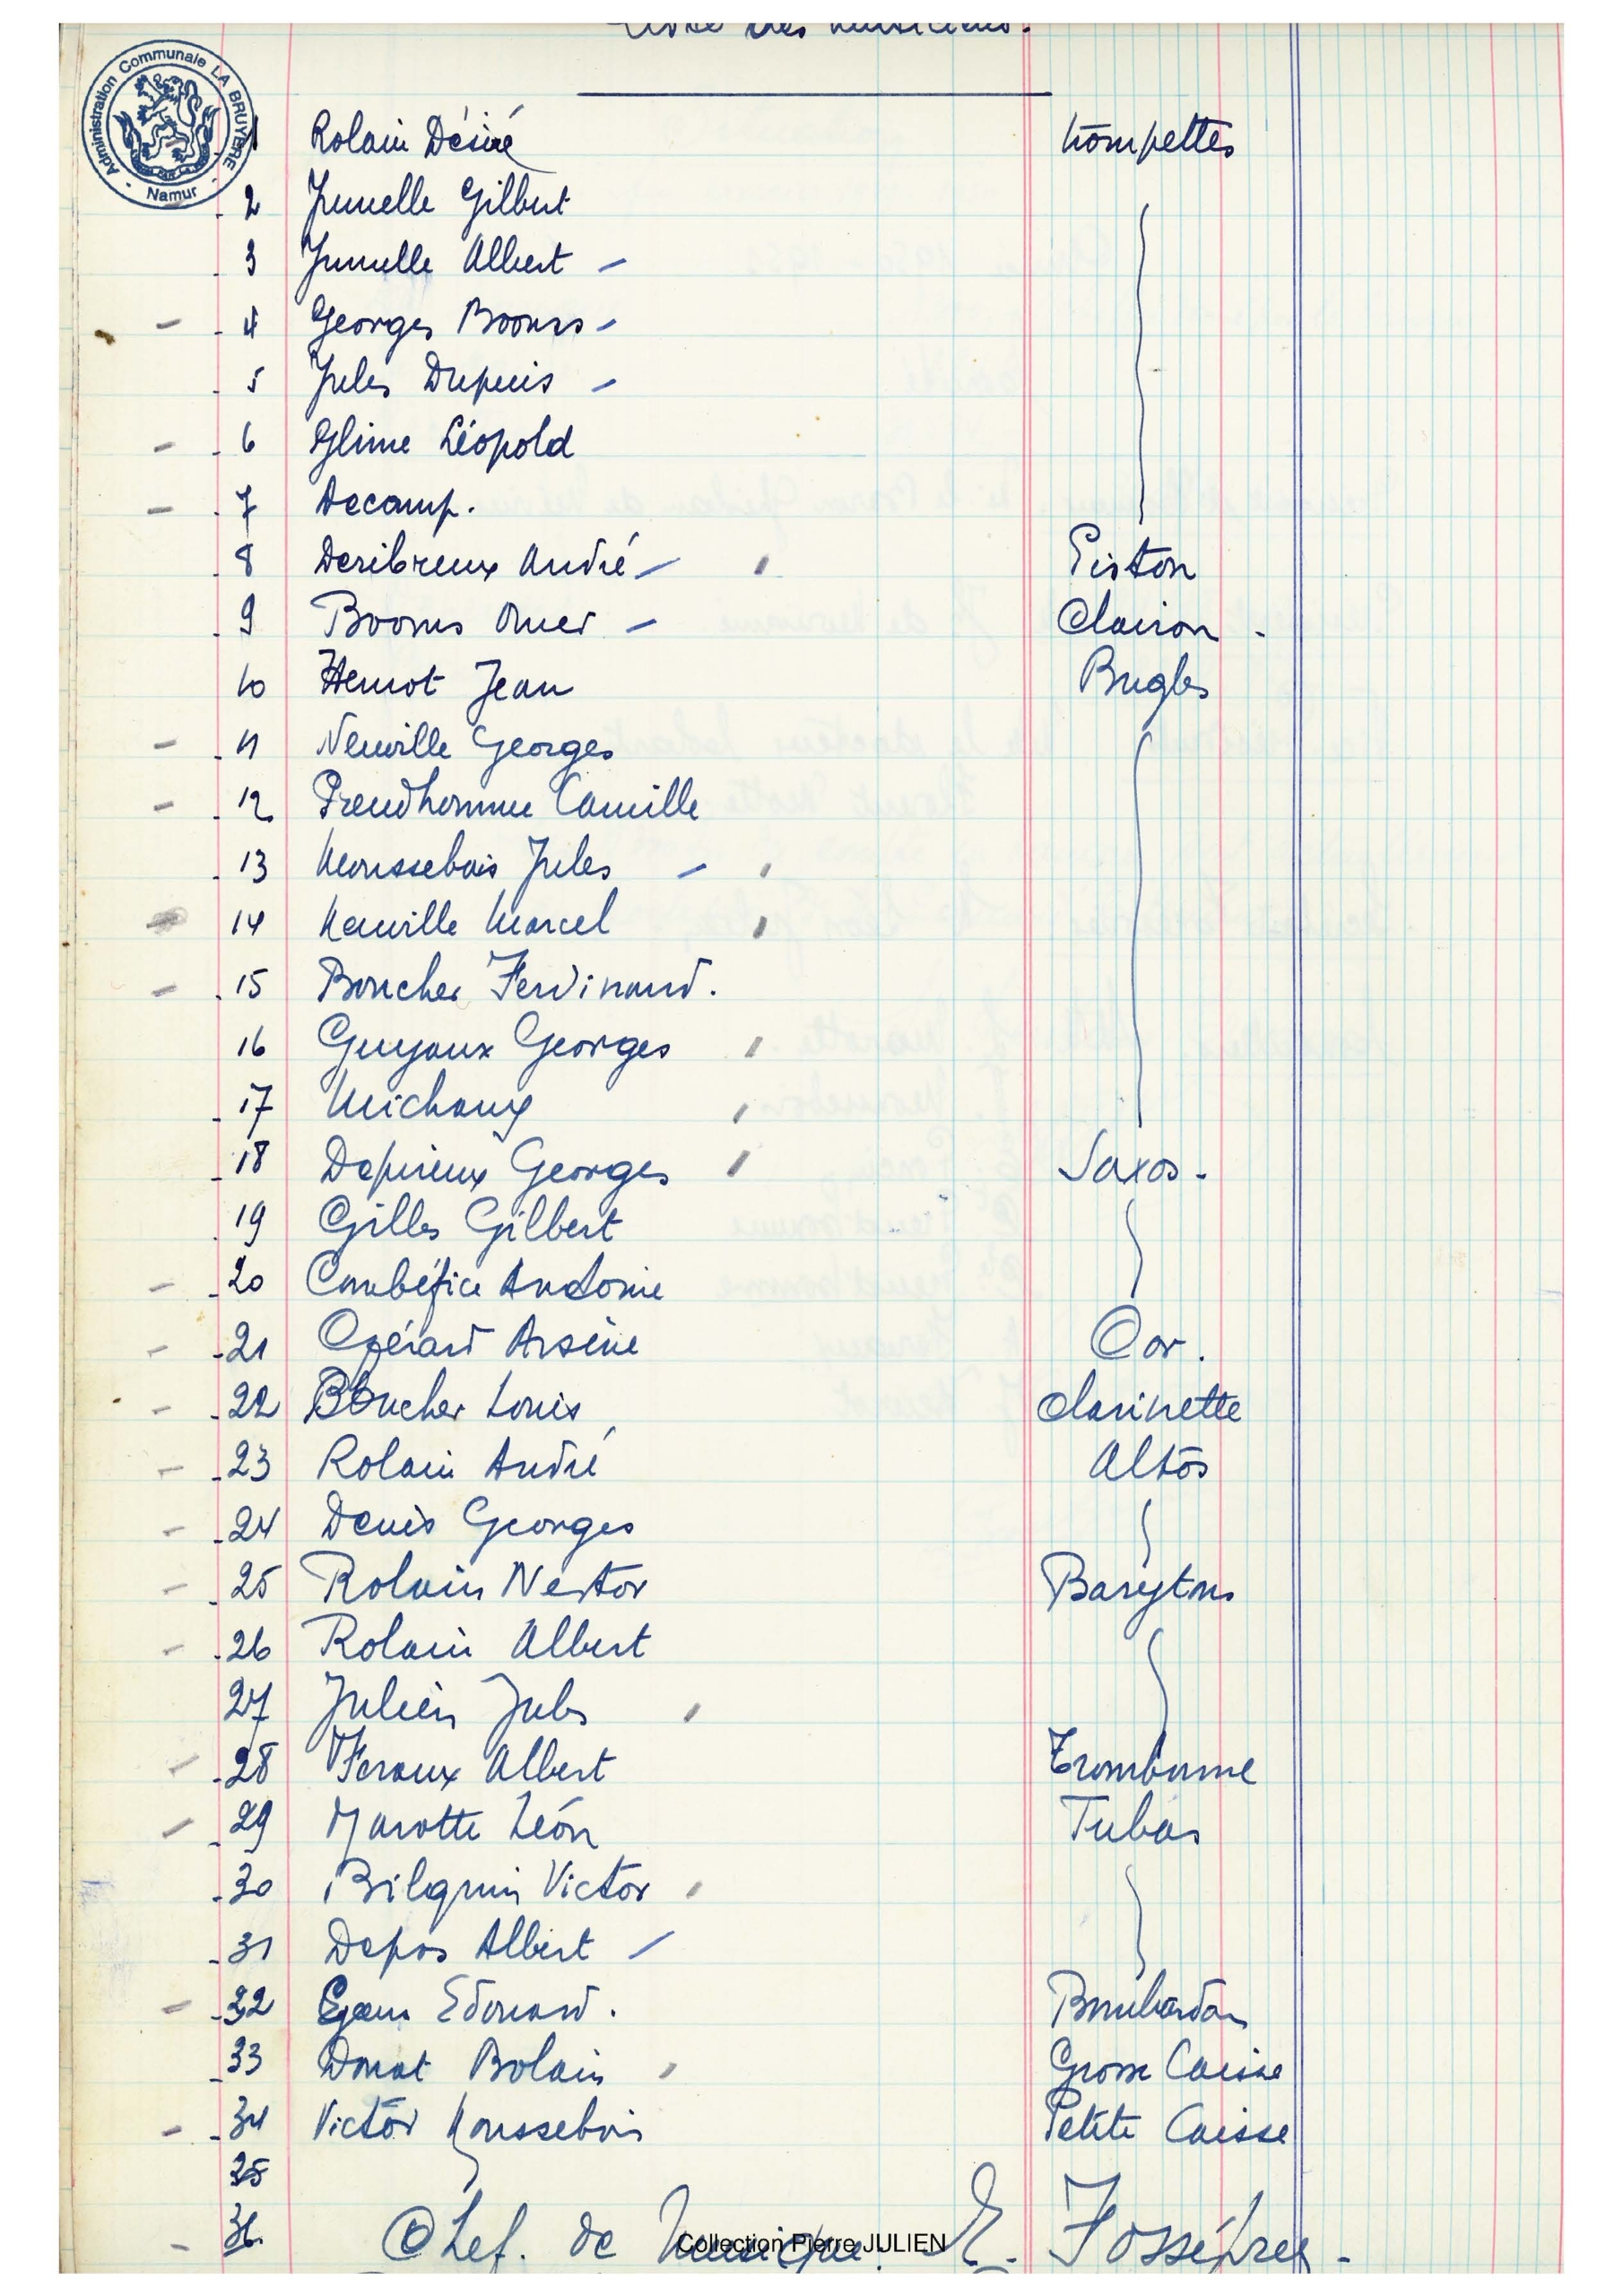 Liste des musiciens.
Administration Communale LA BRUYERE - Namur -
1 Rolain Désiré trompettes
2 Jumelle Gilbert
3 Jumelle Albert -
4 Georges Booms -
5 Jules Dupuis -
6 Glime Léopold
7 Decamp.
8 André - Piston
9 Booms Omer - Clairon -
10 Hemot Jean Bugles
11 Neuville Georges
12 Preudhomme Camille
13 Moussebois Jules -
14 Neuville Marcel
15 Boucher Ferdinand.
16 Guyaux Georges
17 Michaux
18 Depireux Georges Saxos -
19 Gilles Gilbert
20 Combéfice Antoine
21 Gérard Arsène Cor.
22 Boucher Louis Clarinette
23 Rolain André Altos
24 Denis Georges
25 Rolain Nestor Barytons
26 Rolain Albert
27 Julien Jules
28 Feraux Albert Trombonne
29 Marotte Léon Tubas
30 Bilquin Victor
31 Depas Albert -
32 Edouard. Bombardon
33 Donat Rolain Grosse Caisse
34 Victor Moussebois Petite Caisse
35
36 Chef. de Musique. E.
Collection Pierre JULIEN